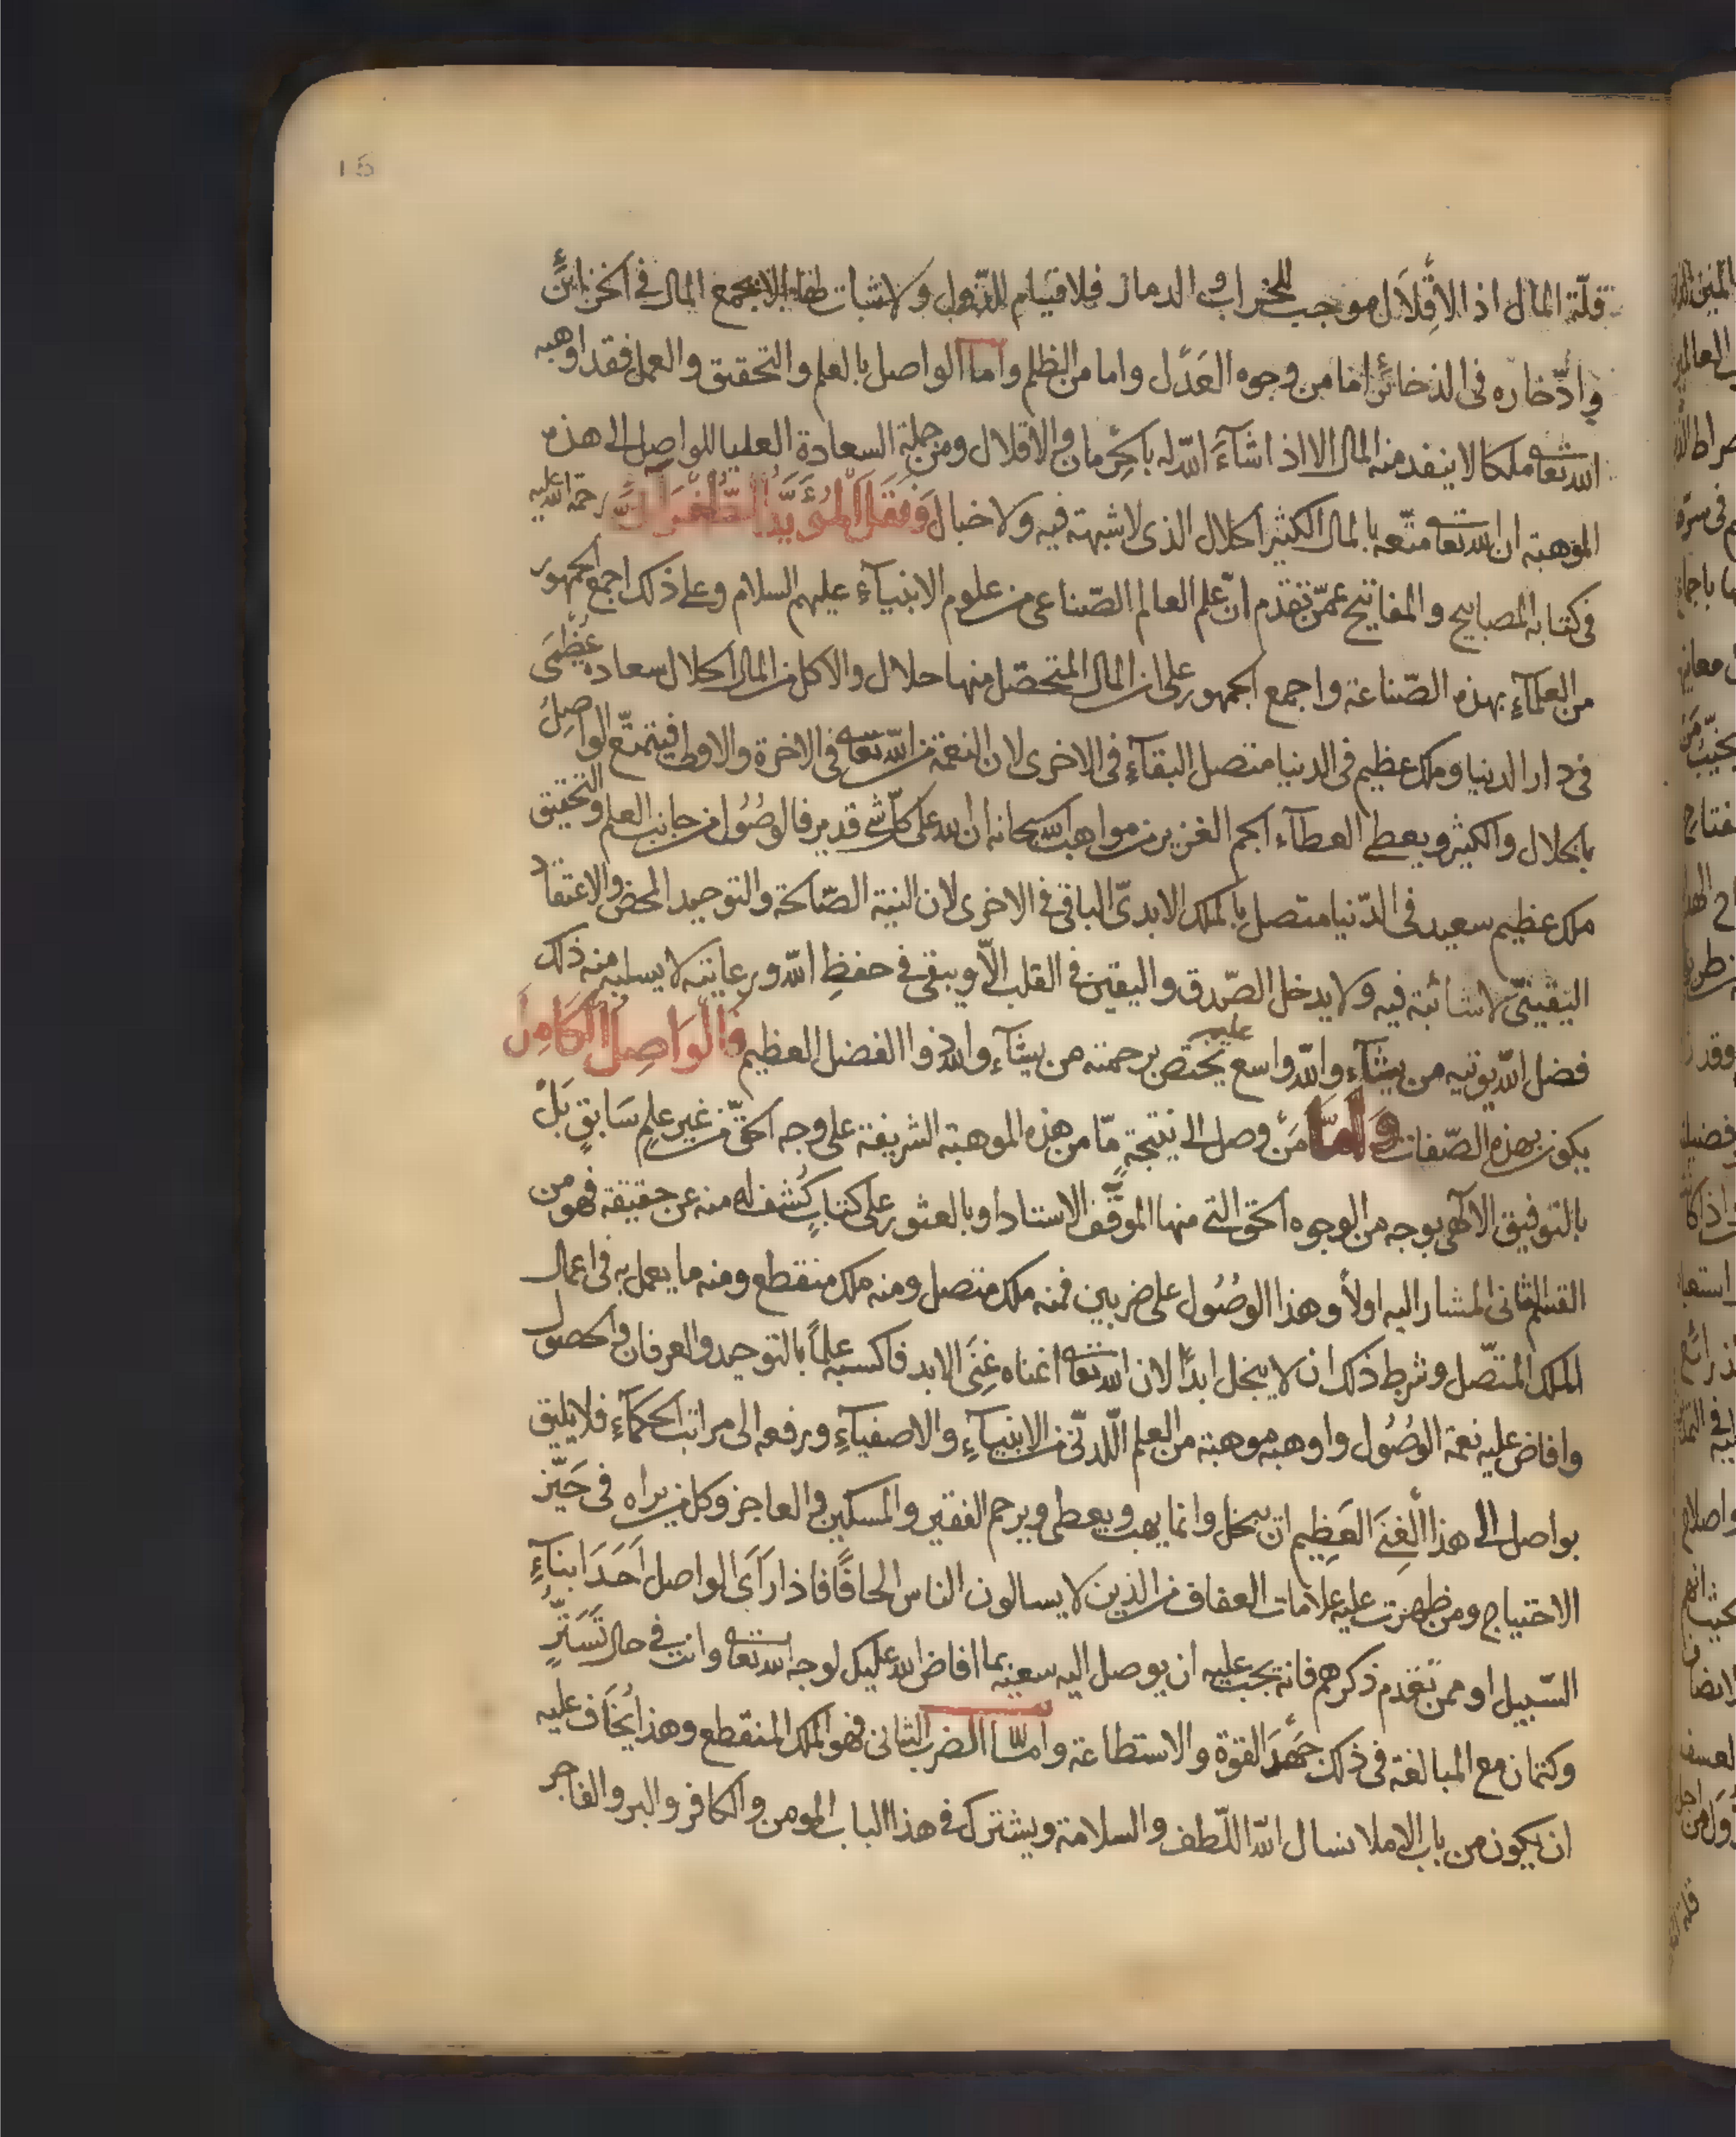 15
قلّة المال اذ الاقلال موجب للخراب والدمار فلا قيام للدّول ولا ثبات لها الا بجمع المال فى الخزائن
وادّخاره فى الذخائر اما من وجوه العدل واما من الظلم واما الواصل بالعلم والتحقيق والعمل فقد اوهبه
الله تعا ملكا لا ينفد منه المال الا اذا شآء الله له بالحرمان والاقلال ومن جملة السعادة العليا للواصل الى هذه
الموهبة ان الله تعا متّعه بالمال الكثير الحلال الذى لا شبهة فيه ولا خبال وَنَقَلَ المُؤَيَّد الطُّغْرَآئى رحمة الله عليه
فى كتابه المصابيح والمفاتيح عمّن تقدم انّ علم العالم الصّناعى من علوم الانبيآء عليهم السلام وعلى ذلك اجمع الجمهور
من العلمآء بهذه الصّناعة واجمع الجمهور على ان المال المتحصّل منها حلال والاكل من المال الحلال سعادة عُظْمَى
فى دار الدنيا وملك عظيم فى الدنيا متصل البقآء فى الاخرى لان النعمة من الله تعا فى الاخرة والاولى فيتمتّع الواصل
بالحلال والكثير ويعطى العطآء الجم الغزير من مواهب الله سبحانه ان الله على كلّ شى قدير فالوصُول من جانب العلم والتحقيق
ملك عظيم سعيد فى الدّنيا متصل بالملك الابدىّ الباقى فى الاخرى لان النية الصّالحة والتوحيد المحض والاعتقاد
اليقينىّ لا شائبة فيه ولا يدخل الصّدق واليقين فى القلب الّا ويبقى فى حفظِ الله ورعايته لا يسلبه منه ذلك
فضل الله يوتيه من يشآء والله واسع عليم يختص برحمته من يشآء والله ذوا الفضل العظيم وَالوَاصِل الكَامِل
يكون بهذه الصّفات وَامّا مَن وصل الى نتيجةٍ مّا من هذه الموهبة الشريفة على وجه الحقّ من غير علمٍ سَابقٍ بَلْ
بالتوفيق الآلهى بوجه من الوجوه الحق التى منها الموقّف الاستاد او بالعثور على كتابٍ كُشف له منه عن حقيقة فهو من
القسم الثانى المشار اليه اولاً وهذا الوصُول على ضربين فمنه ملك متصل ومنه ملك منقطع ومنه ما يعمل به فى اعمال
الملك المتّصل وشرط ذلك ان لا يبخل ابداً لان الله تعا اغناه غِنَى الابد فاكسبه علماً بالتوحيد والعرفان والحصول
وافاض عليه نعمة الوصُول واوهبه موهبة من العلم اللّدنّى من الانبيآءِ والاصفيآءِ ورفعه الى مراتب الحكمآءِ فلا يليق
بواصل الى هذا الغِنَى العَظِيم ان يبخل وانما يهب ويعطى ويرحم الفقير والمسكين والعاجز وكل من يراه فى حَيّز
الاحتياج ومن ظهرت عليه علامات العفاف من الذين لا يسالون الناس الحافًا فاذا رَآى الواصل اَحَدَ ابنآءِ
السّبيل او ممن تقدم ذكرهم فانّه يجب عليه ان يوصل اليه بما افاض الله عليك لوجه الله تعا وانت فى حال تَسَتّرٍ
وكتمان مع المبالغة فى ذلك جَهدَ القوة والاستطاعة وامّا الضرب الثانى فهو الملك المنقطع وهذا يُخاف عليه
ان يكون من باب الاملا نسال الله اللّطف والسلامة ويشترك فى هذا الباب المومن والكافر والبر والفاجر